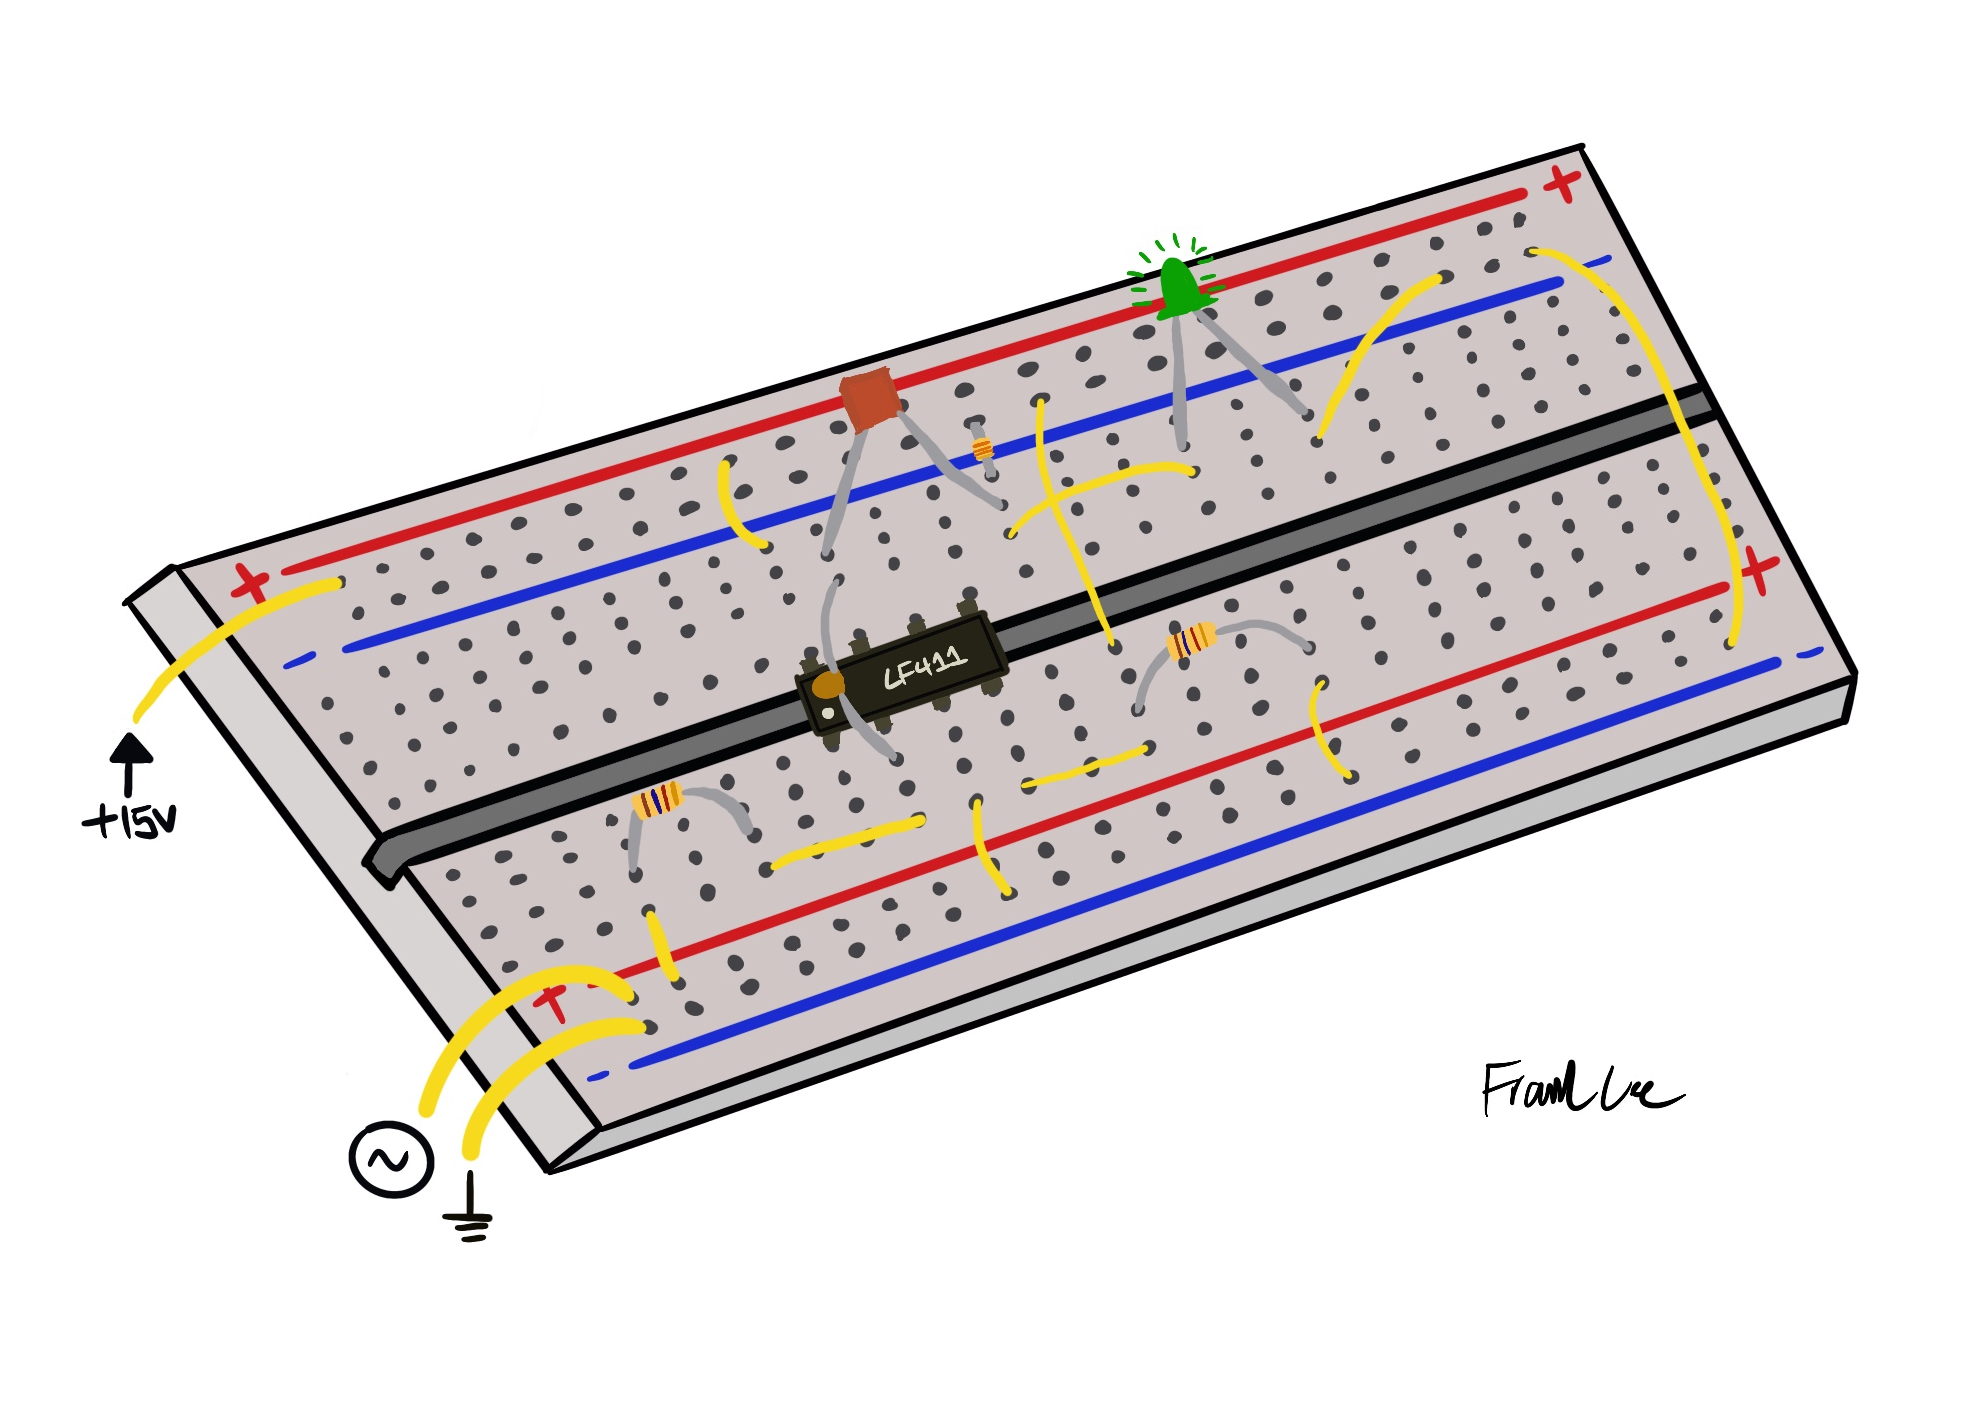 +
+
-
LF411
+
-
+15V
+
-
Frank Lee